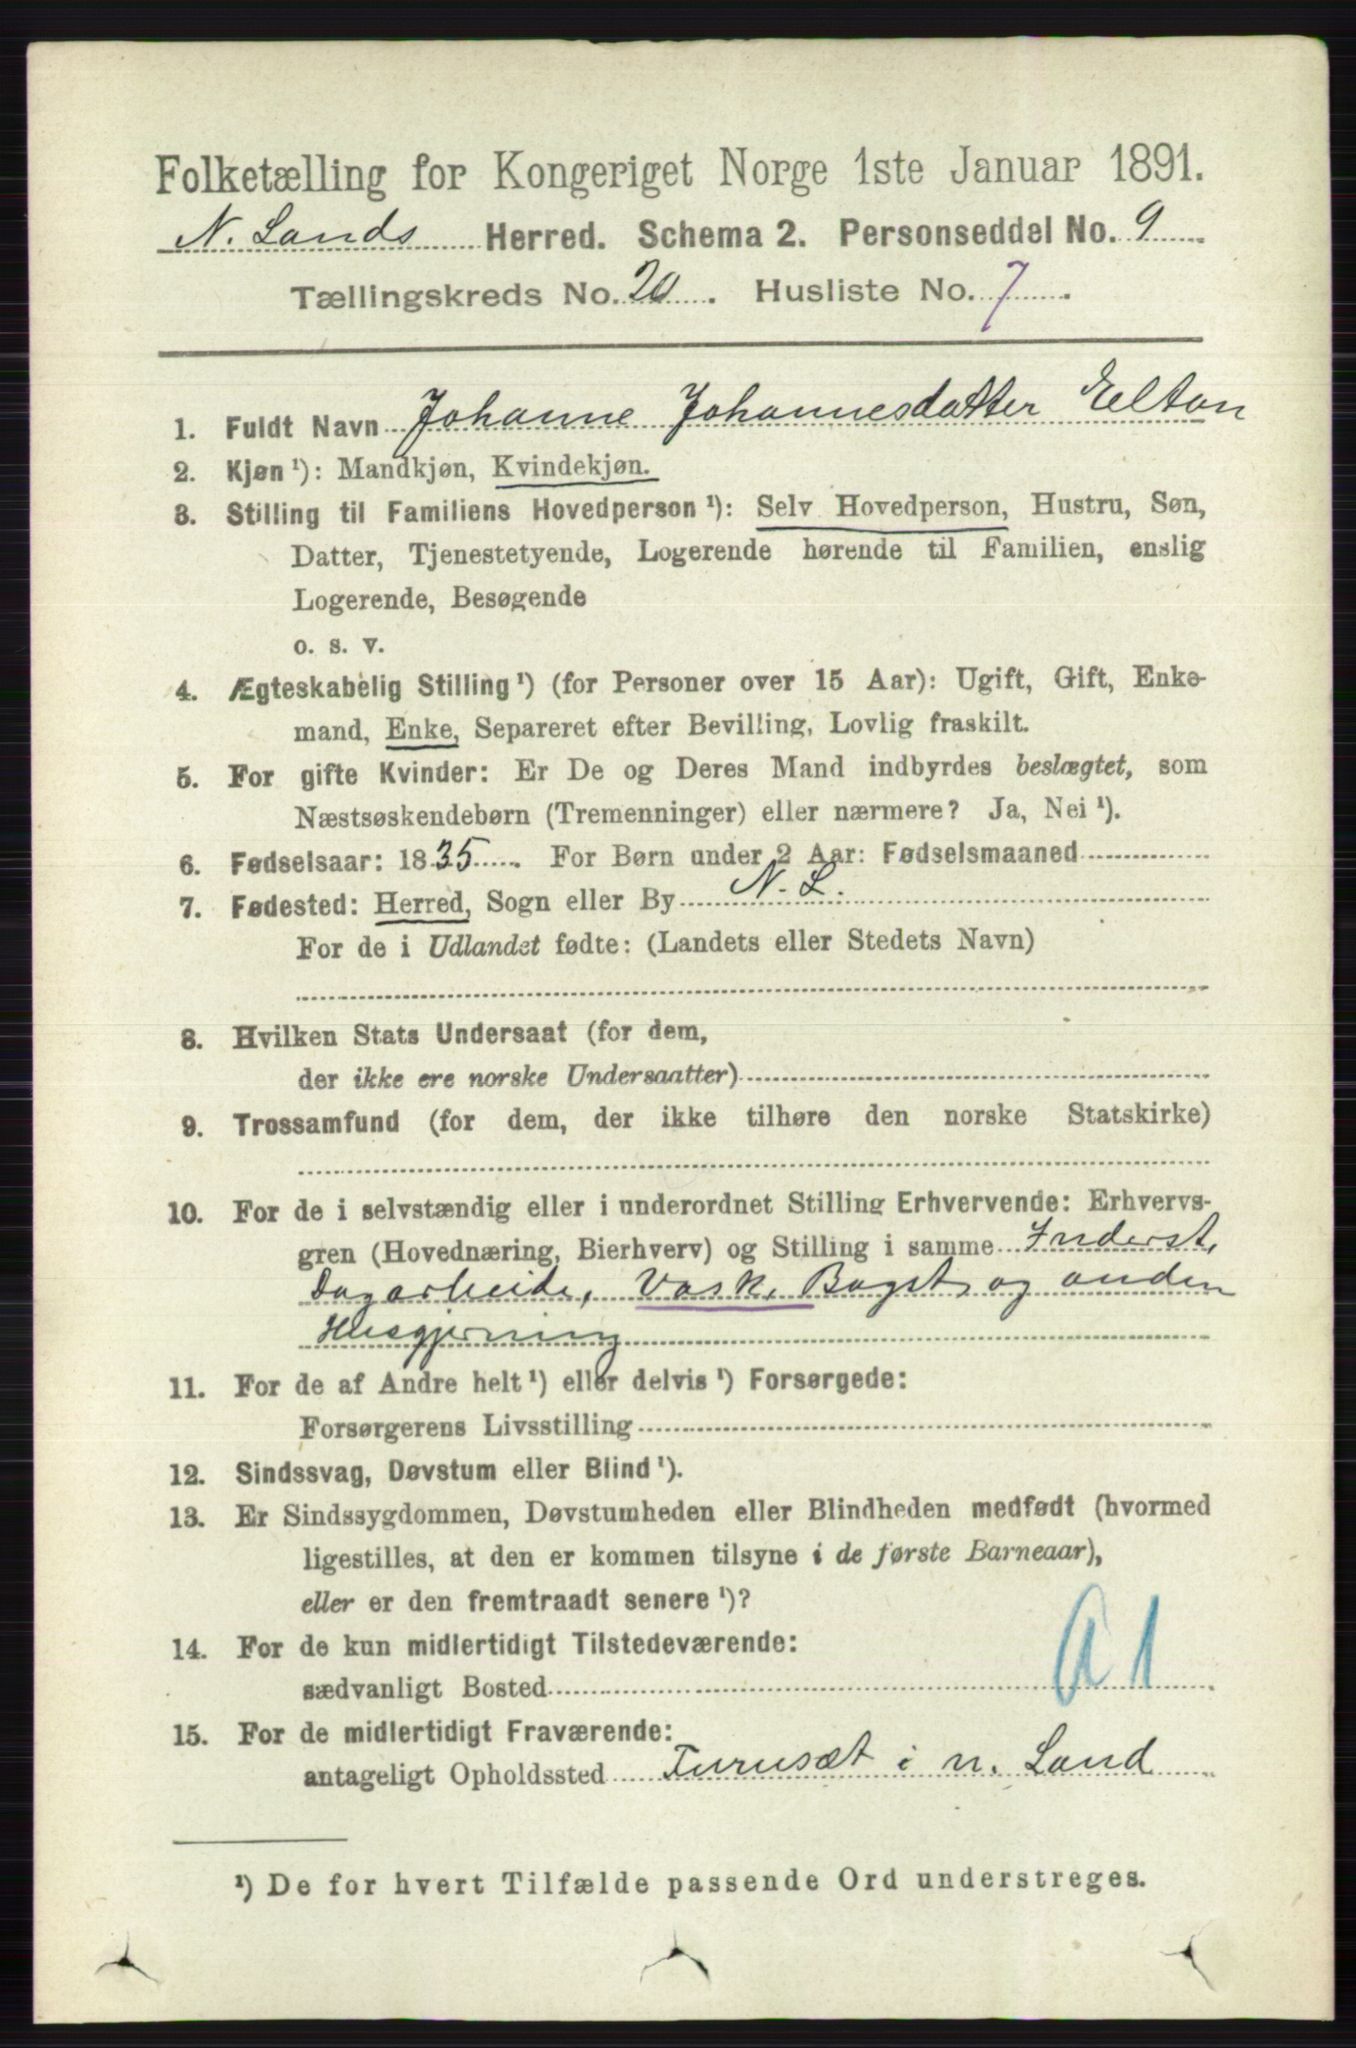 Folketælling for Kongeriget Norge 1ste Januar 1891.
N. Lands Herred. Schema 2. Personseddel No. 9
Tællingskreds No. 20. Husliste No. 7.
1. Fuldt Navn Johanne Johannesdatter Elton
2. Kjøn ¹): Mandkjøn, Kvindekjøn.
3. Stilling til Familiens Hovedperson ¹): Selv Hovedperson, Hustru, Søn,
Datter, Tjenestetyende, Logerende hørende til Familien, enslig
Logerende, Besøgende
o. s. v.
4. Ægteskabelig Stilling ¹) (for Personer over 15 Aar): Ugift, Gift, Enke-
mand, Enke, Separeret efter Bevilling, Lovlig fraskilt.
5. For gifte Kvinder: Er De og Deres Mand indbyrdes beslægtet, som
Næstsøskendebørn (Tremenninger) eller nærmere? Ja, Nei ¹).
6. Fødselsaar: 1835. For Børn under 2 Aar: Fødselsmaaned
7. Fødested: Herred, Sogn eller By N. L.
For de i Udlandet fødte: (Landets eller Stedets Navn)
8. Hvilken Stats Undersaat (for dem,
der ikke ere norske Undersaatter)
9. Trossamfund (for dem, der ikke tilhøre den norske Statskirke)
10. For de i selvstændig eller i underordnet Stilling Erhvervende: Erhvervs-
gren (Hovednæring, Bierhverv) og Stilling i samme Inderst,
Dagarbeide, Vask, Bagst og anden
Husgjerning
11. For de af Andre helt ¹) eller delvis ¹) Forsørgede:
Forsørgerens Livsstilling
12. Sindssvag, Døvstum eller Blind ¹).
13. Er Sindssygdommen, Døvstumheden eller Blindheden medfødt (hvormed
ligestilles, at den er kommen tilsyne i de første Barneaar),
eller er den fremtraadt senere ¹)?
14. For de kun midlertidigt Tilstedeværende:
sædvanligt Bosted a 1
15. For de midlertidigt Fraværende:
antageligt Opholdssted Turusæt i n. Land
¹) De for hvert Tilfælde passende Ord understreges.